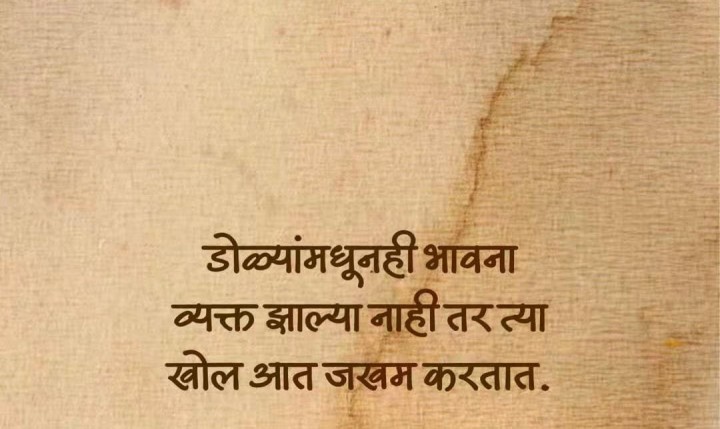 डोळ्यांमधूनही भावना
व्यक्त झाल्या नाही तर त्या
खोल आत जखम करतात.